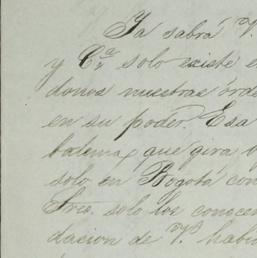 Ya sabrá V.
y Ca. solo existe e
donos nuestras órde
en su poder. Esa
que gira b
solo en Bogotá con
Frco. solo los conocen
dacion de V. habi